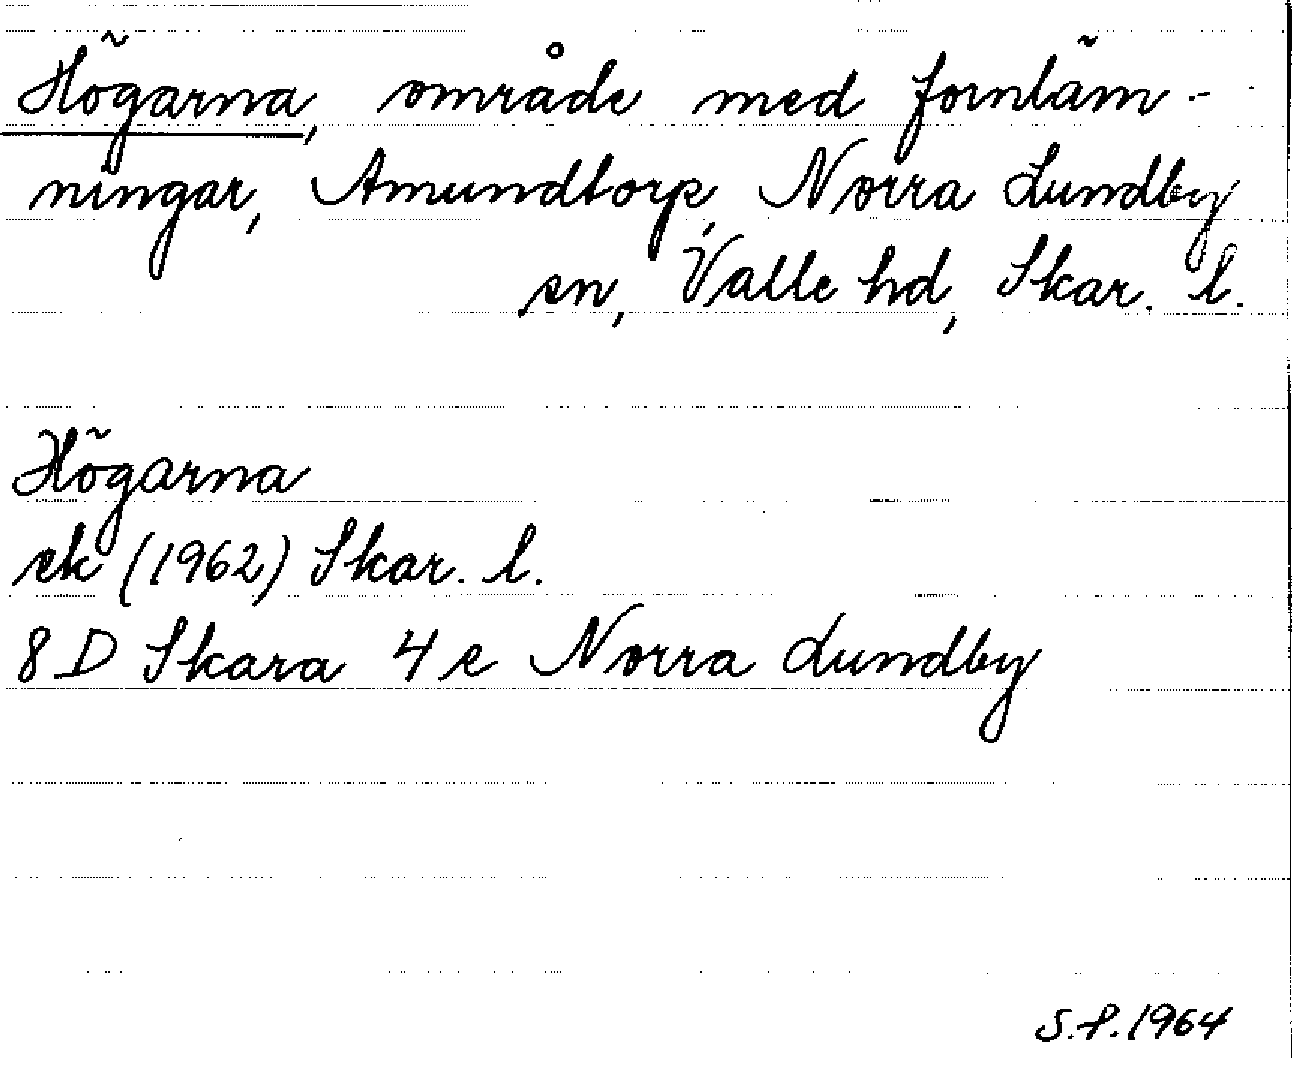 Högarna, område med fornläm-
ningar, Amundtorp, Norra Lundby
sn, Valle hd, Skar. l.
Högarna
ek (1962) Skar. l.
8D Skara 4e Norra Lundby
S.P. 1964